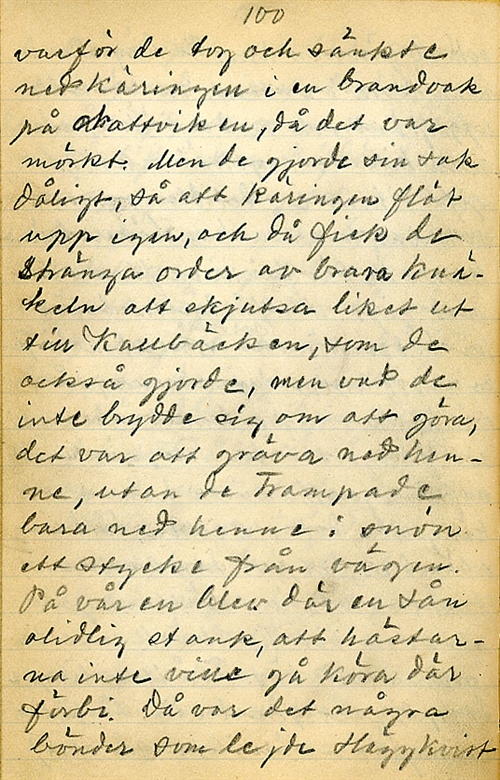 100
varför de tog och sänkte
ned käringen i en brandvak
på Skattviken, då det var
mörkt. Men de gjorde sin sak
dåligt, så att käringen flöt
upp igen, och då fick de
stränga order av brava knä-
keln att skjutsa liket ut
till Kallbäcken, som de
också gjorde, men vad de
inte brydde sig om att göra,
det var att gräva ned hen-
ne, utan de trampade
bara ned henne i snön
ett stycke från vägen.
På våren blev där en sån
olidlig stank, att hästar-
na inte ville gå köra där
förbi. Då var det några
bönder som lejde Häggkvist